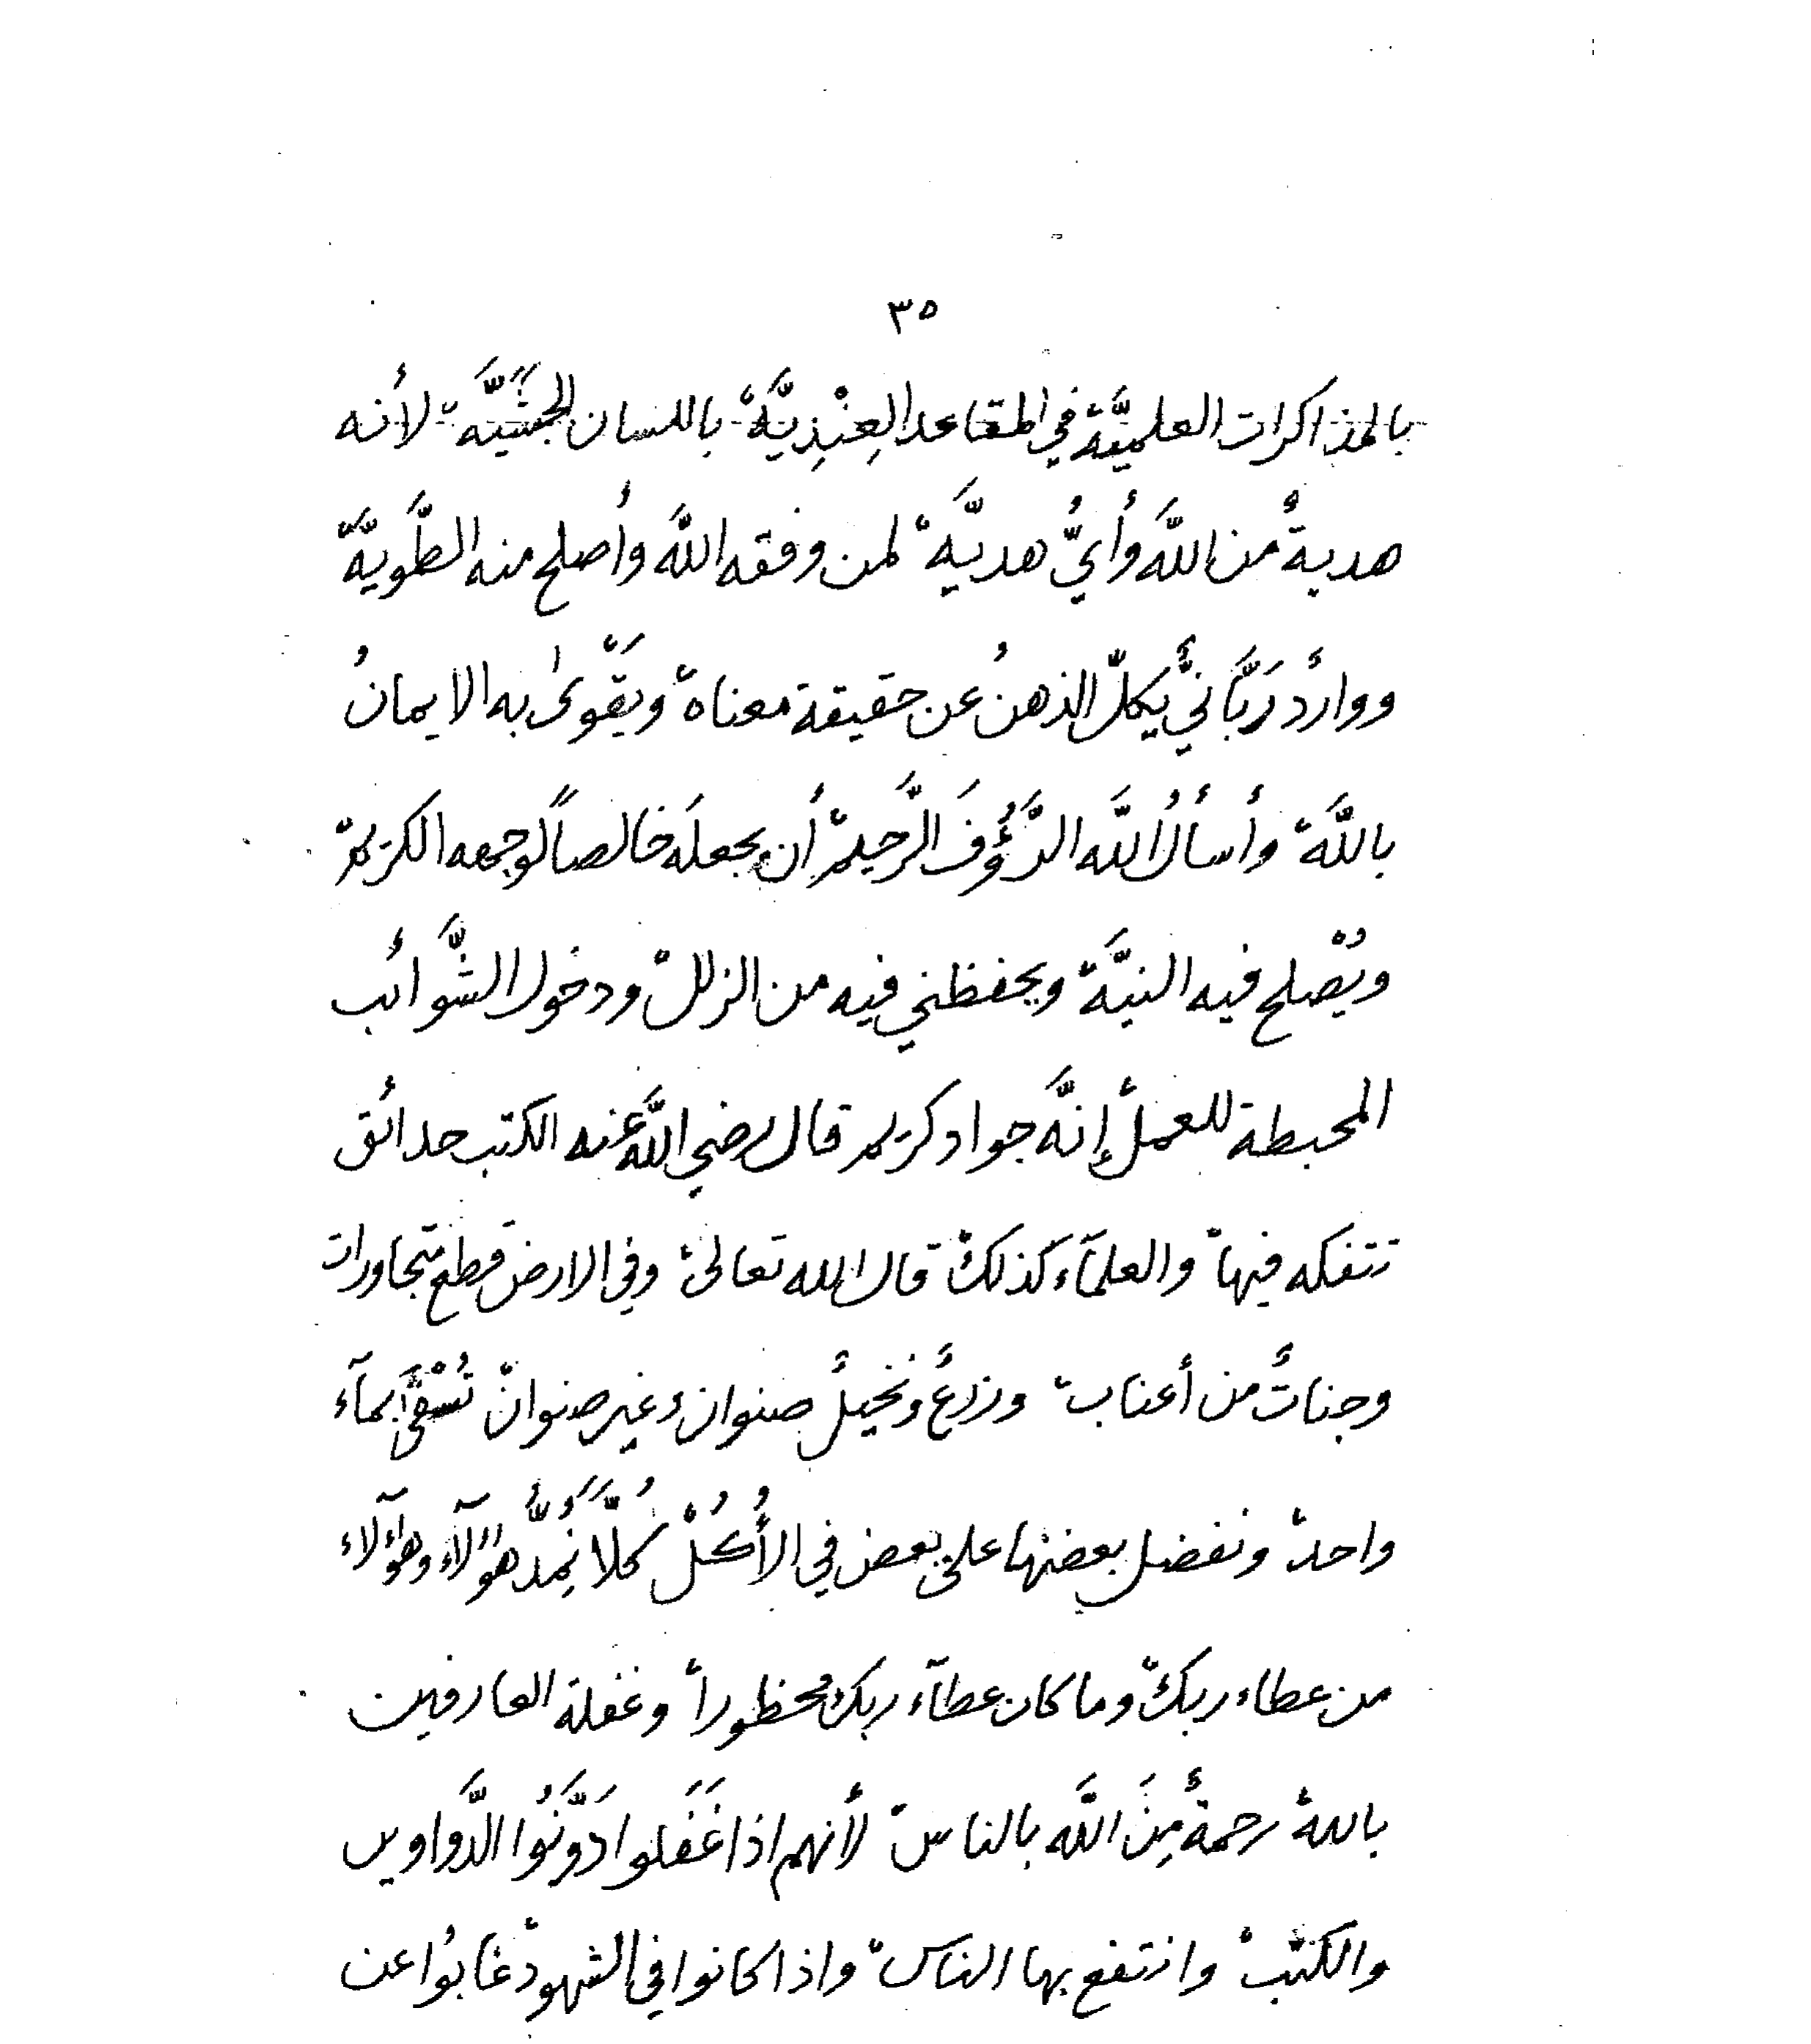 ٣٥
بالمذاكرات العلميَّة في المقاعد العِنْدِيَّة باللسان الحبشيَّة لأنه
هديةٌ من اللَّه وأيُّ هديَّه لمن وفقه اللَّه وأصلح منه الطَّويَّه
وواردٌ رَبَّانيٌّ يكلّ الذهنُ عن حقيقة معناه ويَقْوىٰ به الايمانُ
باللَّه وأسألُ اللَّه الرَّؤُوفَ الرَّحيم أن يجعلَه خالصاً لوجهه الكريم
ويُصْلح فيه النيَّة ويحفظني فيه من الزلل ودخول الشَّوائب
المحبطة للعمل إنَّه جواد كريم قال رضي اللَّه عنه الكتب حدائق
تتفكه فيها والعلمآء كذلك قال الله تعالى وفي الارض قطع متجاورات
وجناتٌ من أعناب وزرعٌ ونخيلٌ صنوان وغير صنوان تُسْقىٰ بمآء
واحد ونفضل بعضها على بعض في الأُكُلْ كُلّاً نُمِدُّ هٰؤلآء وهٰؤلآء
من عطاء ربك وما كان عطآء ربك محظوراً وغفلة العارفين
بالله رحمةٌ مِنَ اللَّه بالناس لأنهم اذا غَفَلوا دَوَّنُوا الدَّواوين
والكتب وانتفع بها الناس واذا كانوا في الشهود غابُوا عن